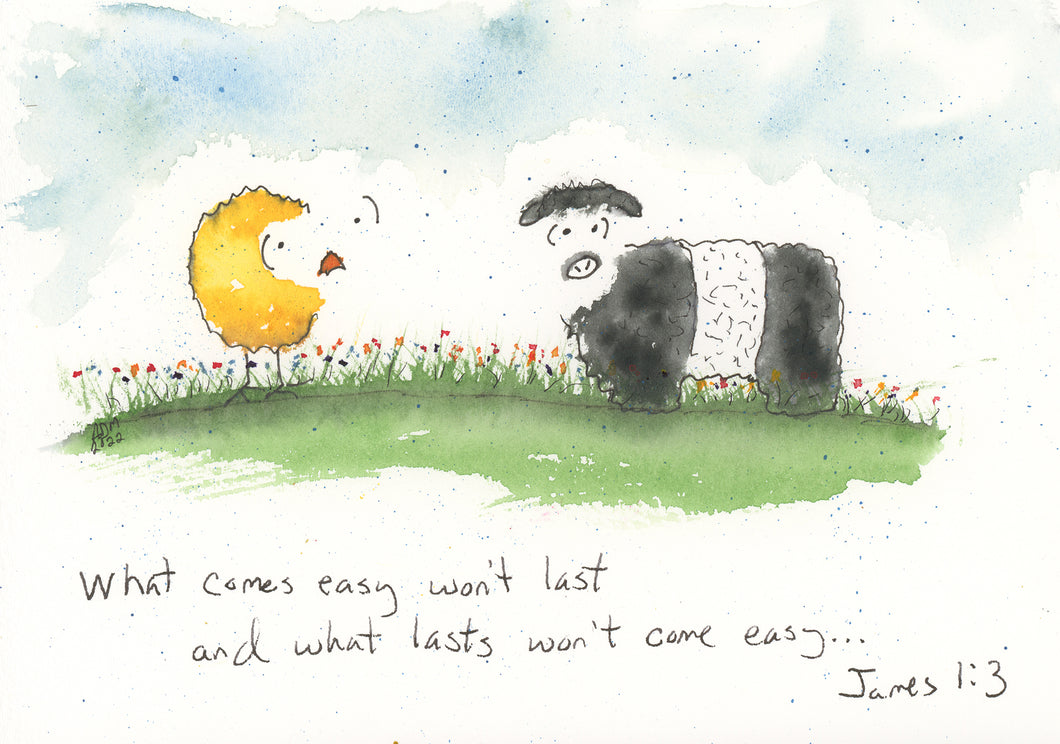 JDM
22
What comes easy won't last
and what lasts won't come easy...
James 1:3